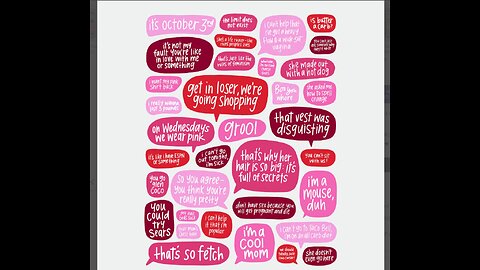 it's october 3rd
the limit does
not exist
i can't help that
i've got a heavy
flow & a wide-set
vagina
is butter
a carb?
it's not my
fault you're like
in love with me
or something
she's a life ruiner - she
ruins people's lives
that's just like the
rules of feminism
she made out
with a hot dog
i want my pink
shirt back
get in loser, we're
going shopping
Boo, you
whore
she asked me
how to spell
orange
i really wanna
lose 3 pounds
on Wednesdays
we wear pink
grool
that vest was
disgusting
it's like i have ESPN
or something
i can't go
out tonight,
i'm sick
that's why her
hair is so big. it's
full of secrets
you can't sit
with us!
you go
glen
coco
so you agree -
you think you're
really pretty
i'm a
mouse,
duh
you
could
try
Sears
i can't help
it that i'm
popular
don't have sex because you
will get pregnant and die
i can't go to Taco Bell,
i'm on an all carb diet
that's so fetch
i'm a
cool
mom
she doesn't
even go here